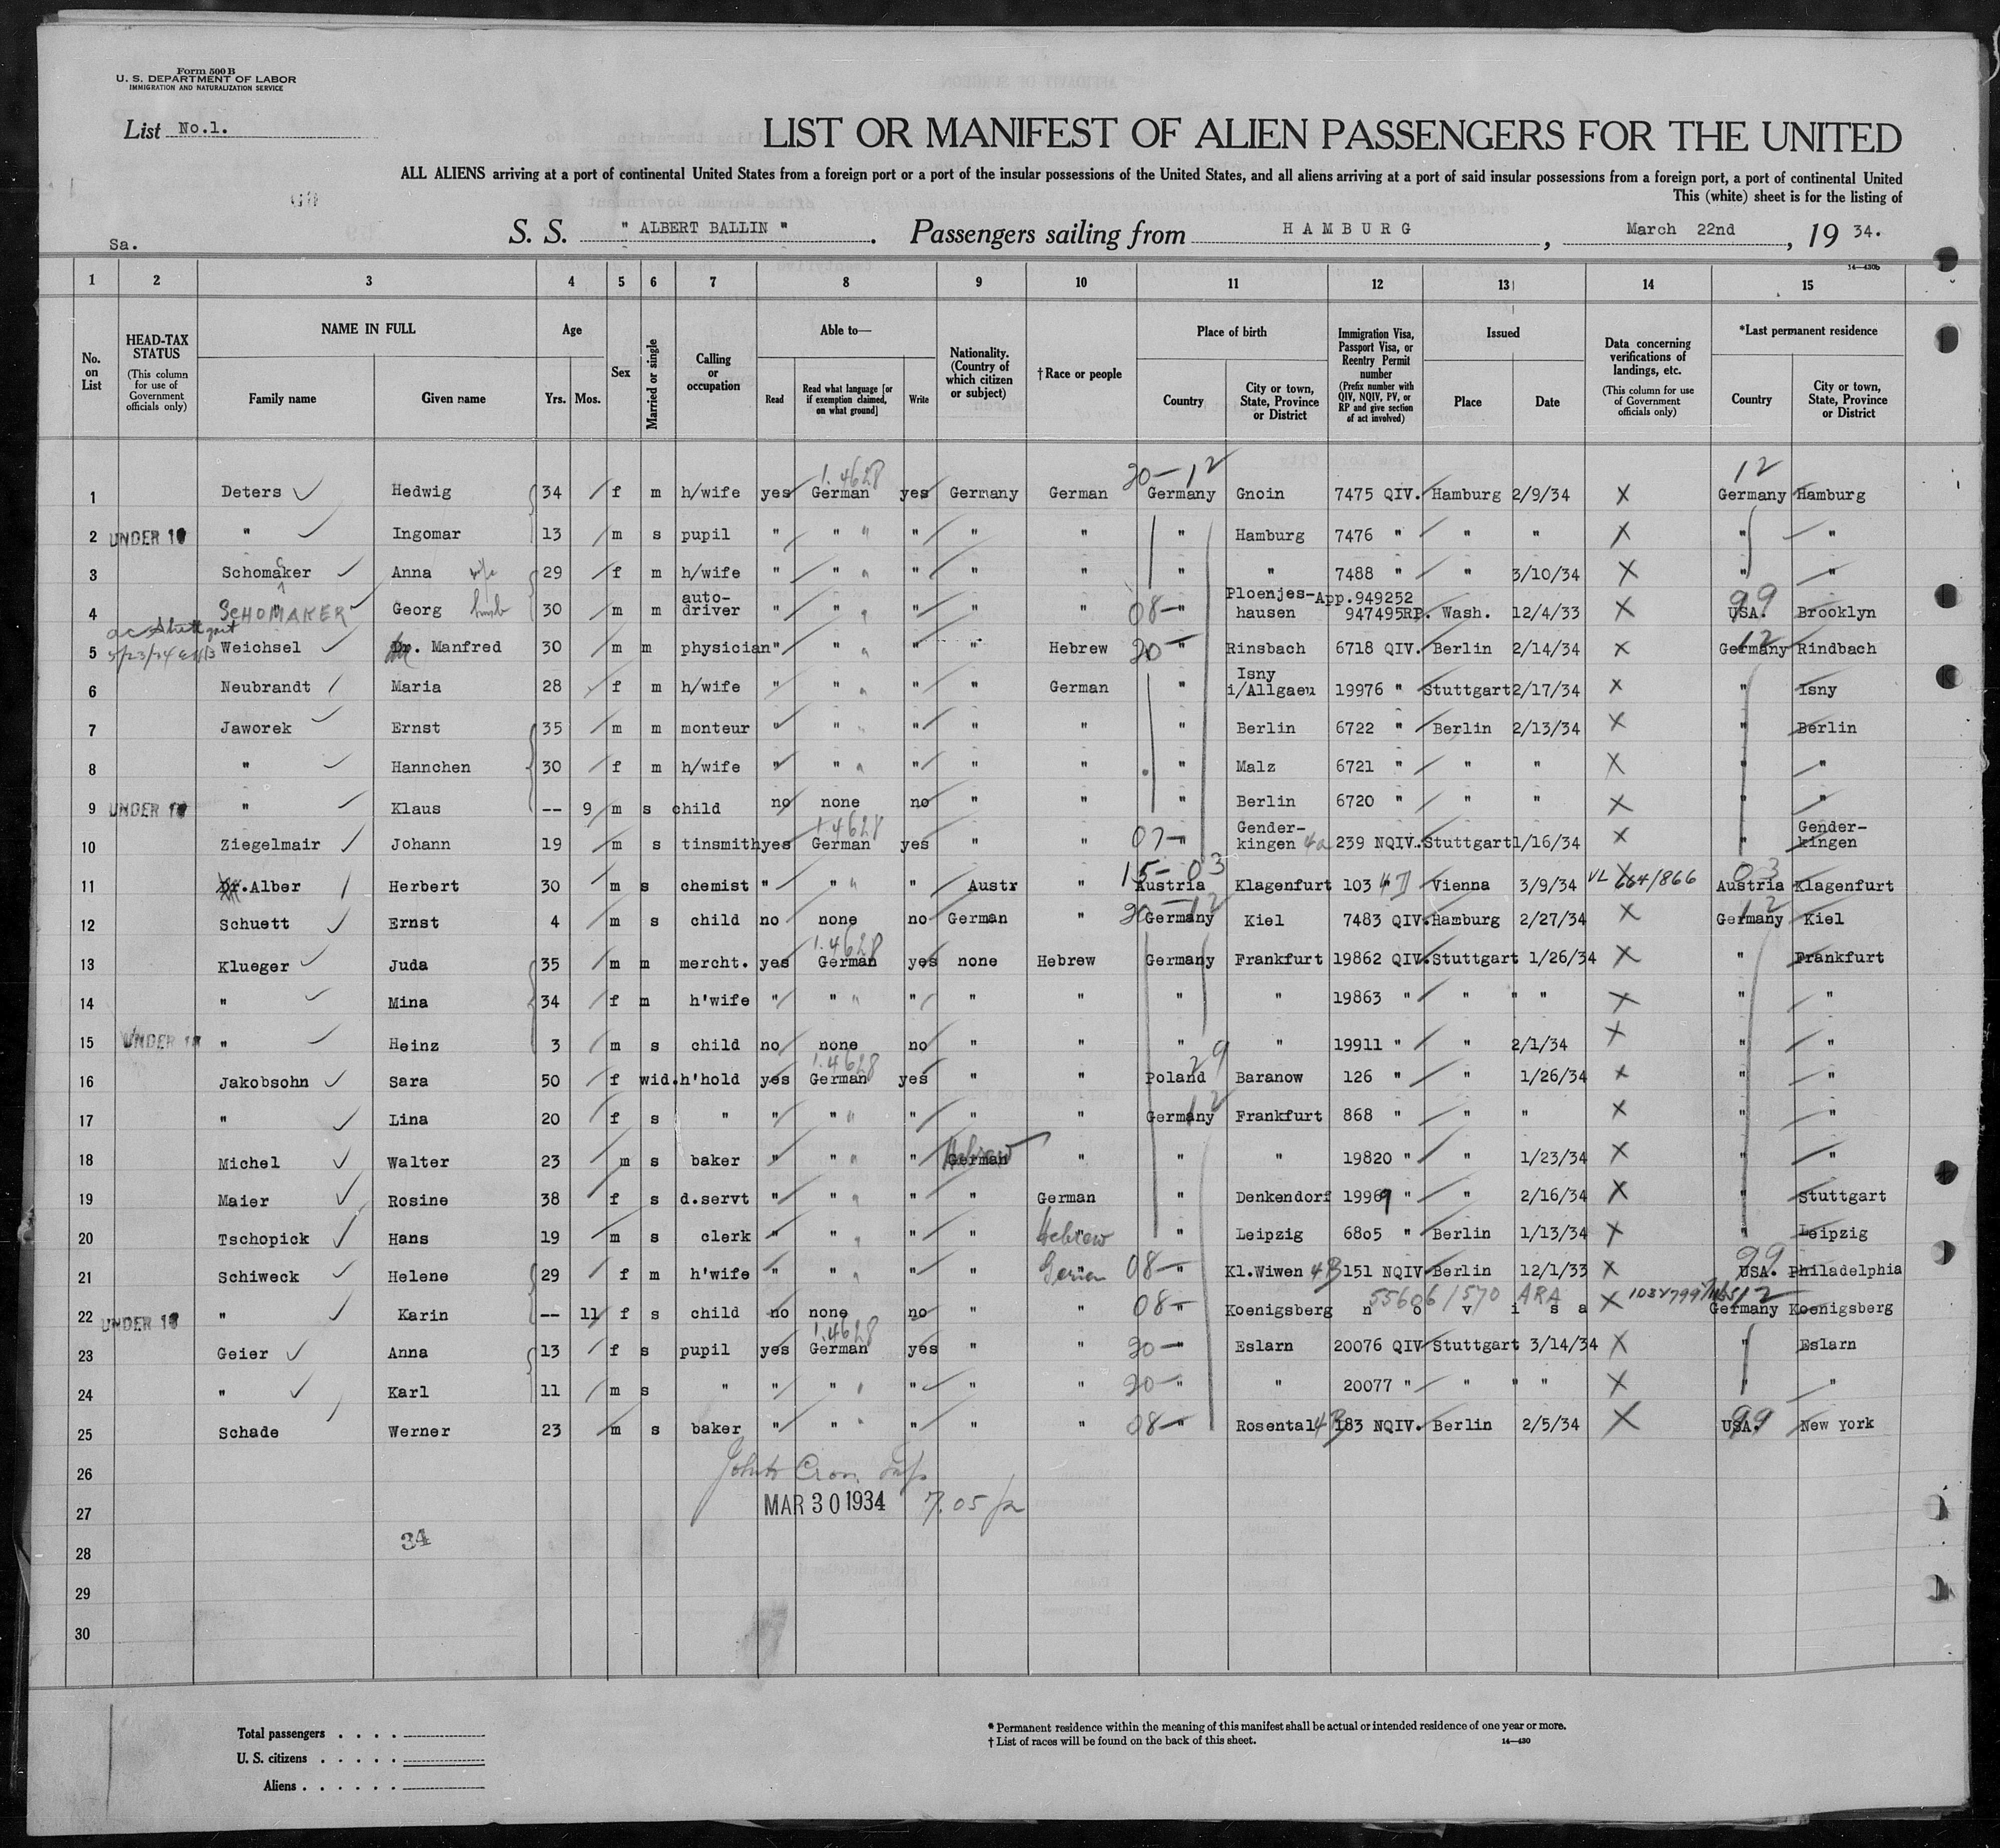 Form 500 B
U. S. DEPARTMENT OF LABOR
IMMIGRATION AND NATURALIZATION SERVICE
List No.1.
LIST OR MANIFEST OF ALIEN PASSENGERS FOR THE UNITED
ALL ALIENS arriving at a port of continental United States from a foreign port or a port of the insular possessions of the United States, and all aliens arriving at a port of said insular possessions from a foreign port, a port of continental United
This (white) sheet is for the listing of
Sa.
S. S. " ALBERT BALLIN " . Passengers sailing from HAMBURG , March 22nd , 19 34.
14—430b
1 2 3 4 5 6 7 8 9 10 11 12 13 14 15
No. on List
HEAD-TAX STATUS (This column for use of Government officials only)
NAME IN FULL Family name Given name
Age Yrs. Mos.
Sex
Married or single
Calling or occupation
Able to— Read Read what language [or if exemption claimed, on what ground] Write
Nationality. (Country of which citizen or subject)
†Race or people
Place of birth Country City or town, State, Province or District
Immigration Visa, Passport Visa, or Reentry Permit number (Prefix number with QIV, NQIV, PV, or RP and give section of act involved)
Issued Place Date
Data concerning verifications of landings, etc. (This column for use of Government officials only)
*Last permanent residence Country City or town, State, Province or District
1.4628 20—12 12
1 Deters Hedwig 34 f m h/wife yes German yes Germany German Germany Gnoin 7475 QIV. Hamburg 2/9/34 X Germany Hamburg
2 UNDER 1 " Ingomar 13 m s pupil " " " " " " " Hamburg 7476 " " " X " "
3 Schomaker Anna wife 29 f m h/wife " " " " " " " " 7488 " " 3/10/34 X " "
4 SCHOMAKER Georg husb 30 m m auto-driver " " " " " " 08— " Ploenjes-hausen App.949252 947495RP. Wash. 12/4/33 X USA. 99 Brooklyn
5 Weichsel Dr. Manfred 30 m m physician " " " " " Hebrew 20— " Rinsbach 6718 QIV. Berlin 2/14/34 X Germany 12 Rindbach
6 Neubrandt Maria 28 f m h/wife " " " " " German " Isny i/Allgaeu 19976 " Stuttgart 2/17/34 X " Isny
7 Jaworek Ernst 35 m m monteur " " " " " " " Berlin 6722 " Berlin 2/13/34 X " Berlin
8 " Hannchen 30 f m h/wife " " " " " " " Malz 6721 " " " X " "
9 UNDER 1 " Klaus -- 9 m s child no none no " " " Berlin 6720 " " " X " "
1.4628
10 Ziegelmair Johann 19 m s tinsmith yes German yes " " 07— " Gender-kingen 4a 239 NQIV. Stuttgart 1/16/34 X " Gender-kingen
15—03 03
11 Dr.Alber Herbert 30 m s chemist " " " " Austr " Austria Klagenfurt 103 " Vienna 3/9/34 VL 664/866 Austria Klagenfurt
20—12 12
12 Schuett Ernst 4 m s child no none no German " Germany Kiel 7483 QIV. Hamburg 2/27/34 X Germany Kiel
1.4628
13 Klueger Juda 35 m m mercht. yes German yes none Hebrew Germany Frankfurt 19862 QIV. Stuttgart 1/26/34 X " Frankfurt
14 " Mina 34 f m h'wife " " " " " " " " 19863 " " " " X " "
15 UNDER 1 " Heinz 3 m s child no none no " " " " 19911 " " 2/1/34 X " "
1.4628 29
16 Jakobsohn Sara 50 f wid. h'hold yes German yes " " Poland Baranow 126 " " 1/26/34 X " "
12
17 " Lina 20 f s " " " " " " " Germany Frankfurt 868 " " " X " "
18 Michel Walter 23 m s baker " " " " German Hebrew " " " 19820 " " 1/23/34 X " "
19 Maier Rosine 38 f s d.servt " " " " " German " Denkendorf 19969 " " 2/16/34 X " Stuttgart
20 Tschopick Hans 19 m s clerk " " " " " " Hebrew " Leipzig 6805 " Berlin 1/13/34 X " Leipzig
21 Schiweck Helene 29 f m h'wife " " " " " " 08— " Kl.Wiwen 4B 151 NQIV Berlin 12/1/33 X USA. 99 Philadelphia
55606/570 ARA
22 UNDER 1 " Karin -- 11 f s child no none no " " 08— " Koenigsberg n o v i s a X Germany 12 Koenigsberg
1.4628
23 Geier Anna 13 f s pupil yes German yes " " 20— " Eslarn 20076 QIV Stuttgart 3/14/34 X " Eslarn
24 " Karl 11 m s " " " " " " " 20— " " 20077 " " " " X " "
25 Schade Werner 23 m s baker " " " " " " 08— " Rosental 4B 183 NQIV. Berlin 2/5/34 X USA. 99 New York
26
27 MAR 30 1934 7.05 p
28 34
29
30
Total passengers . . . .
U. S. citizens . . . . .
Aliens . . . . . .
* Permanent residence within the meaning of this manifest shall be actual or intended residence of one year or more.
† List of races will be found on the back of this sheet.
14—430